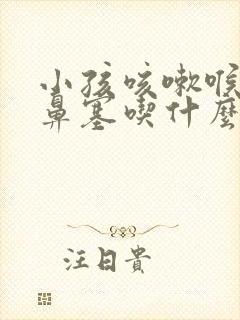 小孩咳嗽喉
鼻塞喫什麼
汪日貴